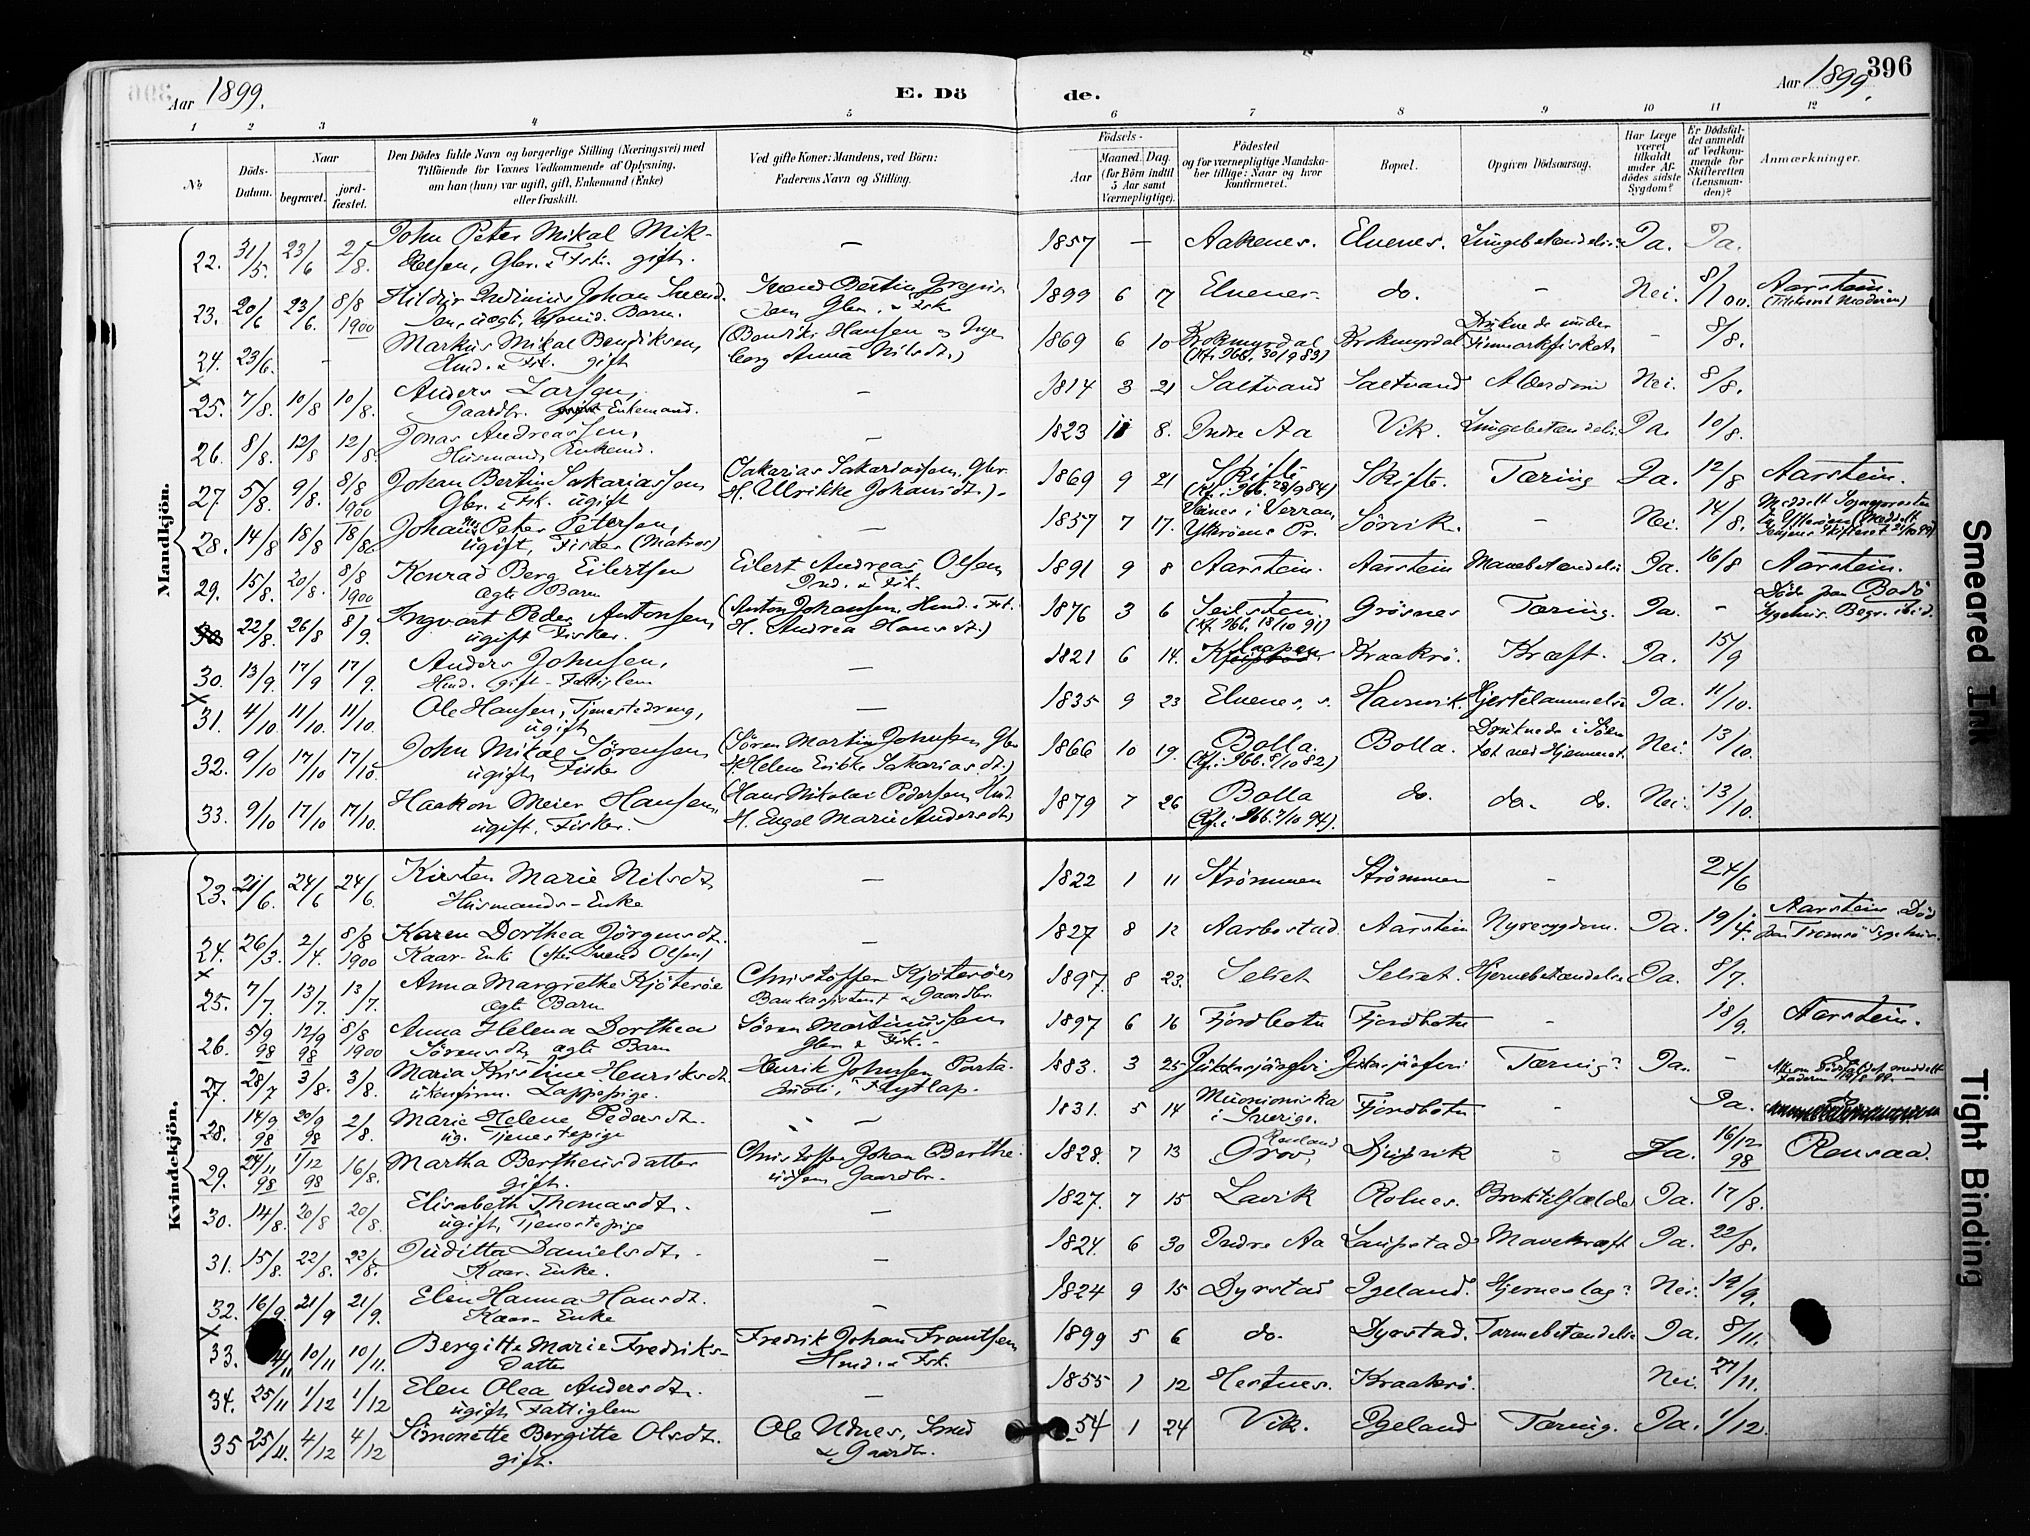 Aar 1899.
E. Dö
de.
Aar 1899.
396
1 2 3 4 5 6 7 8 9 10 11 12
No
Döds-
Datum.
Naar
begravet.
jord-
fæstet.
Den Dödes fulde Navn og borgerlige Stilling (Næringsvei) med
Tilföiende for Voxnes Vedkommende af Oplysning,
om han (hun) var ugift, gift, Enkemand (Enke)
eller fraskilt.
Ved gifte Koner: Mandens, ved Börn:
Faderens Navn og Stilling.
Födsels-
Aar
Maaned. Dag.
(for Börn indtil
5 Aar samt
Værnepligtige).
Födested
og for værnepligtige Mandska-
ber tillige: Naar og hvor
konfirmeret.
Bopæl.
Opgiven Dödsaarsag.
Har Læge
været
tilkaldt
under Af-
dödes sidste
Sygdom?
Er Dödsfal-
det anmeldt
af Vedkom-
mende for
Skifteretten
(Lensman-
den)?
Anmærkninger.
Mandkjön.
22. 31/5. 23/6 2/8. John Peter Mikal Mik-
kelsen, Gbr. & Fsk. gift. — 1857 — Aakenes. Elvenes. Lungebetændelse Ja. Ja.
23. 20/6 23/6. 8/8 1900 Hildur Indinius Johan Svend-
sen, uægt. Barn. Svend Bertin Gregus-
sen Gbr. & Fsk. 1899 6 7 Elvenes. do. — Nei. 8/1 00. Aarstein.
24. 23/6. - Markus Mikal Bendiksen,
Hmd. & Fsk. gift (Bendik Hansen og Inge
borg Anna Nilsdt.) 1869 6 10 Krokmyrdal
(Kf. Ibb. 30/9 83) Krokmyrdal Druknede under
Finmarkfisket. — 8/8.
x
25. 7/8. 10/8 10/8. Anders Larssen,
Gaardbr. Enkemand. — 1814 3 21 Saltvand Saltvand Alderdom Nei. 8/8.
26. 8/8. 12/8 12/8. Jonas Andreassen,
Husmand, Enkemd. — 1823 11 8. Indre Aa Vik. Lungebetændelse Ja. 10/8.
27. 5/8. 9/8. 8/8 1900 Johan Bertin Sakariassen
Gbr. & Fsk. ugift (Sakarias Sakariassen, Gbr.
H. Ulrikke Johansdt.) 1869 9 21 Skifte
(Kf. i Ibb. 28/9 84) Skifte. Tæring Ja. 12/8 Aarstein.
28. 14/8 18/8 18/8. Johannes Peter Petersen,
ugift, Fisker (Matros) — 1857 7 17. Veines i Verran,
Ytterøens Pr. Sørvik. — Nei. 14/8.
29. 15/8. 20/8. 8/8 1900 Konrad Berg Eilertsen
ægte Barn Eilert Andreas Olsen,
Ind. & Fsk. 1891 9 8 Aarstein. Aarstein Mavebetændelse Ja. 16/8 Aarstein.
22/8. 26/8 8/9. Ingvart Peder Antonsen,
ugift Fisker. (Anton Johansen, Hmd. & Fsk.
H. Andrea Hansdt.) 1876 3 6 Seilsten.
(Kf. Ibb. 18/10 91) Grøsnes Tæring. Ja. - Døde paa Bodø
Sygehus. Begr. ibid.
30. 13/9. 17/9 17/9. Anders Johnsen,
Hmd. gift - Fattiglem — 1821 6 14. Kraakrø. Kræft. Ja. 15/9
x
31. 4/10 11/10. 11/10. Ole Hansen, Tjenestedreng,
ugift — 1835 9 23 Elvenes, s. Havnvik. Hjertelammelse Ja. 11/10.
32. 9/10 17/10 17/10. John Mikal Sørensen,
ugift, Fisker (Søren Martin Johnsen, Gbr.
H. Helena Sakariasdt.) 1866 10 19. Bolla.
(Kf. i Ibb. 8/10 82) Bolla. Druknede i Søen
tæt ved Hjemmet. Nei. 13/10.
33. 9/10 17/10 17/10. Haakon Meier Hansen,
ugift, Fisker. (Hans Nikolai Pedersen, Hmd.
H. Engel Marie Andersdt.) 1879 7 26 Bolla
(Kf. i Ibb. 7/10 94). do. do. do. Nei. 13/10.
Kvindekjön.
23. 21/6. 24/6 24/6. Kirsten Marie Nilsdt.
Husmands-Enke — 1822 1 11 Strømmen Strømmen — 24/6
24. 26/3. 2/4. 8/8 1900 Karen Dorthea Jørgensdt.
Kaar-Enke (efter Svend Olsen) — 1827 8 12 Aarbostad. Aarstein Nyresygdom. Ja. 19/4. Aarstein. Død
paa Tromsø Sygehus.
x
25. 7/7. 13/7. 13/7. Anna Margrethe Kjøterøe
ægte Barn Christoffer Kjøterøe
Bankassistent & Gaardbr. 1897. 8 23. Selset Selset. Hjernebetændelse Ja. 8/7.
26. 5/9 98 12/9 98 8/8 1900 Anna Helena Dorthea
Sørensdt. ægte Barn Søren Martinussen
Gbr. & Fsk. 1897 6 16 Fjordbotn Fjordbotn - 18/9. Aarstein.
27. 28/7 3/8. 3/8. Maria Kristine Henriksdt.
ukonfirm. Lappepige. Henrik Johnsen Parta-
, Flytlap. 1883. 3 25 Jukkasjärfvi Jukkasjärfvi Tæring? Ja. -
28. 14/9 98 20/9 98 2/8. Marie Helene Pedersdt.
ug. Tjenestepige — 1831. 5 14 Muonioniska
i Sverige. Fjordbotn - Ja.
29. 24/11 98 1/12 98 16/8. Martha Bertheusdatter
gift. Christoffer Johan Berthe-
usen Gaardbr. 1828. 7 13 Grov, Djupvik - Ja. 16/12 98 Rensaa.
30. 14/8. 20/8 20/8. Elisabeth Thomasdt.
ugift, Tjenestepige — 1827. 7 15 Lavik Rolnes. Broktilfælde Ja. 17/8.
31. 15/8. 22/8. 22/8. Juditta Danielsdt.
Kaar-Enke. — 1824. 6 30 Indre Aa Laupstad Mavekræft Ja. 22/8.
32. 16/9. 21/9 21/9. Elen Hanna Hansdt.
Kaar-Enke — 1824 9 15 Dyrstad Igeland. Hjerneslag? Nei. 19/9.
x
33. 4/11 10/11 10/11. Bergitte Marie Fredriks-
datter Fredrik Johan Frantsen
Hmd. & Fsk. 1899 5 6 do. Dyrstad. Tarmebetændelse Ja. 8/11.
34. 25/11 1/12 1/12 Elen Olea Andersdt.
ugift, Fattiglem — 1855 1 12 Hestnes. Kraakrø. Nei. 27/11.
35 25/11. 4/12 4/12 Simonette Bergitte Olsdt.
gift. Ole Udnes, Smed
& Gaardbr. 54 1 24 Vik. Igeland Tæring. Ja. 1/12.
Smeared Ink
Tight Binding